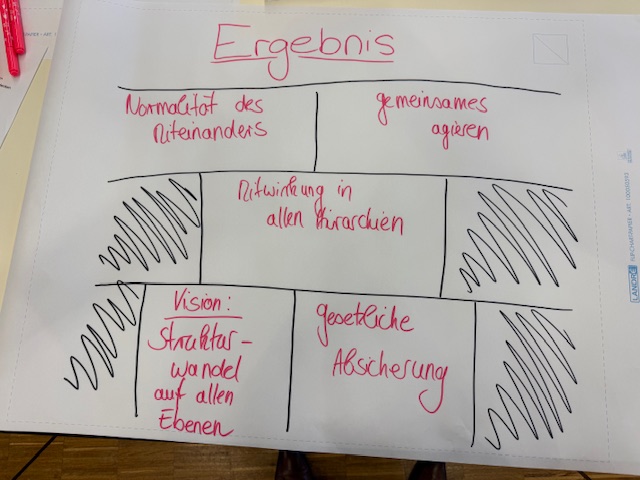 Ergebnis
Normalität des
Miteinanders
gemeinsames
agieren
Mitwirkung in
allen Hirarchien
Vision:
Struktur-
wandel
auf allen
Ebenen
gesetzliche
Absicherung
LANDRÉ